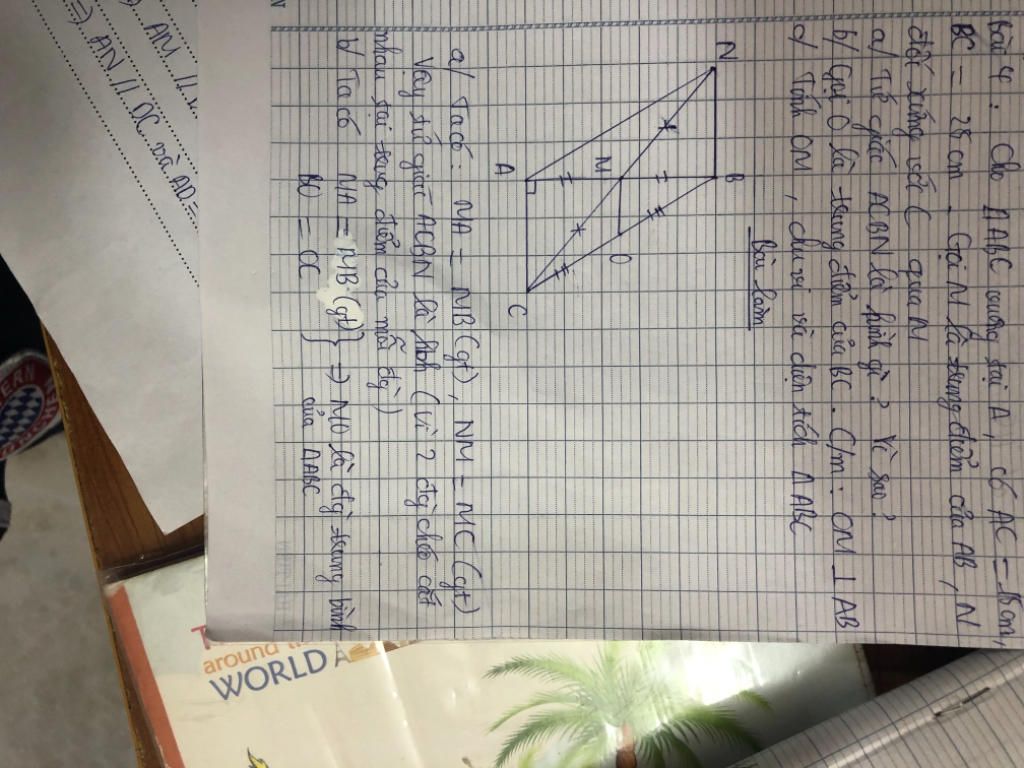 Bài 4: Cho ΔABC vuông tại A, có AC = 15cm,
BC = 25 cm. Gọi M là trung điểm của AB, N
đối xứng với C qua M
a/ Tứ giác ACBN là hình gì? Vì sao?
b/ Gọi O là trung điểm của BC. C/m: OM ⊥ AB
c/ Tính OM, chu vi và diện tích ΔABC
Bài làm
N
B
M
O
A
C
a/ Ta có: MA = MB (gt), NM = MC (gt)
Vậy tứ giác ACBN là hbh (vì 2 đg chéo cắt
nhau tại trung điểm của mỗi đg)
b/ Ta có MA = MB (gt) } ⇒ MO là đg trung bình
BO = OC của ΔABC
AM //
⇒ AN // DC và AD =
around
WORLD